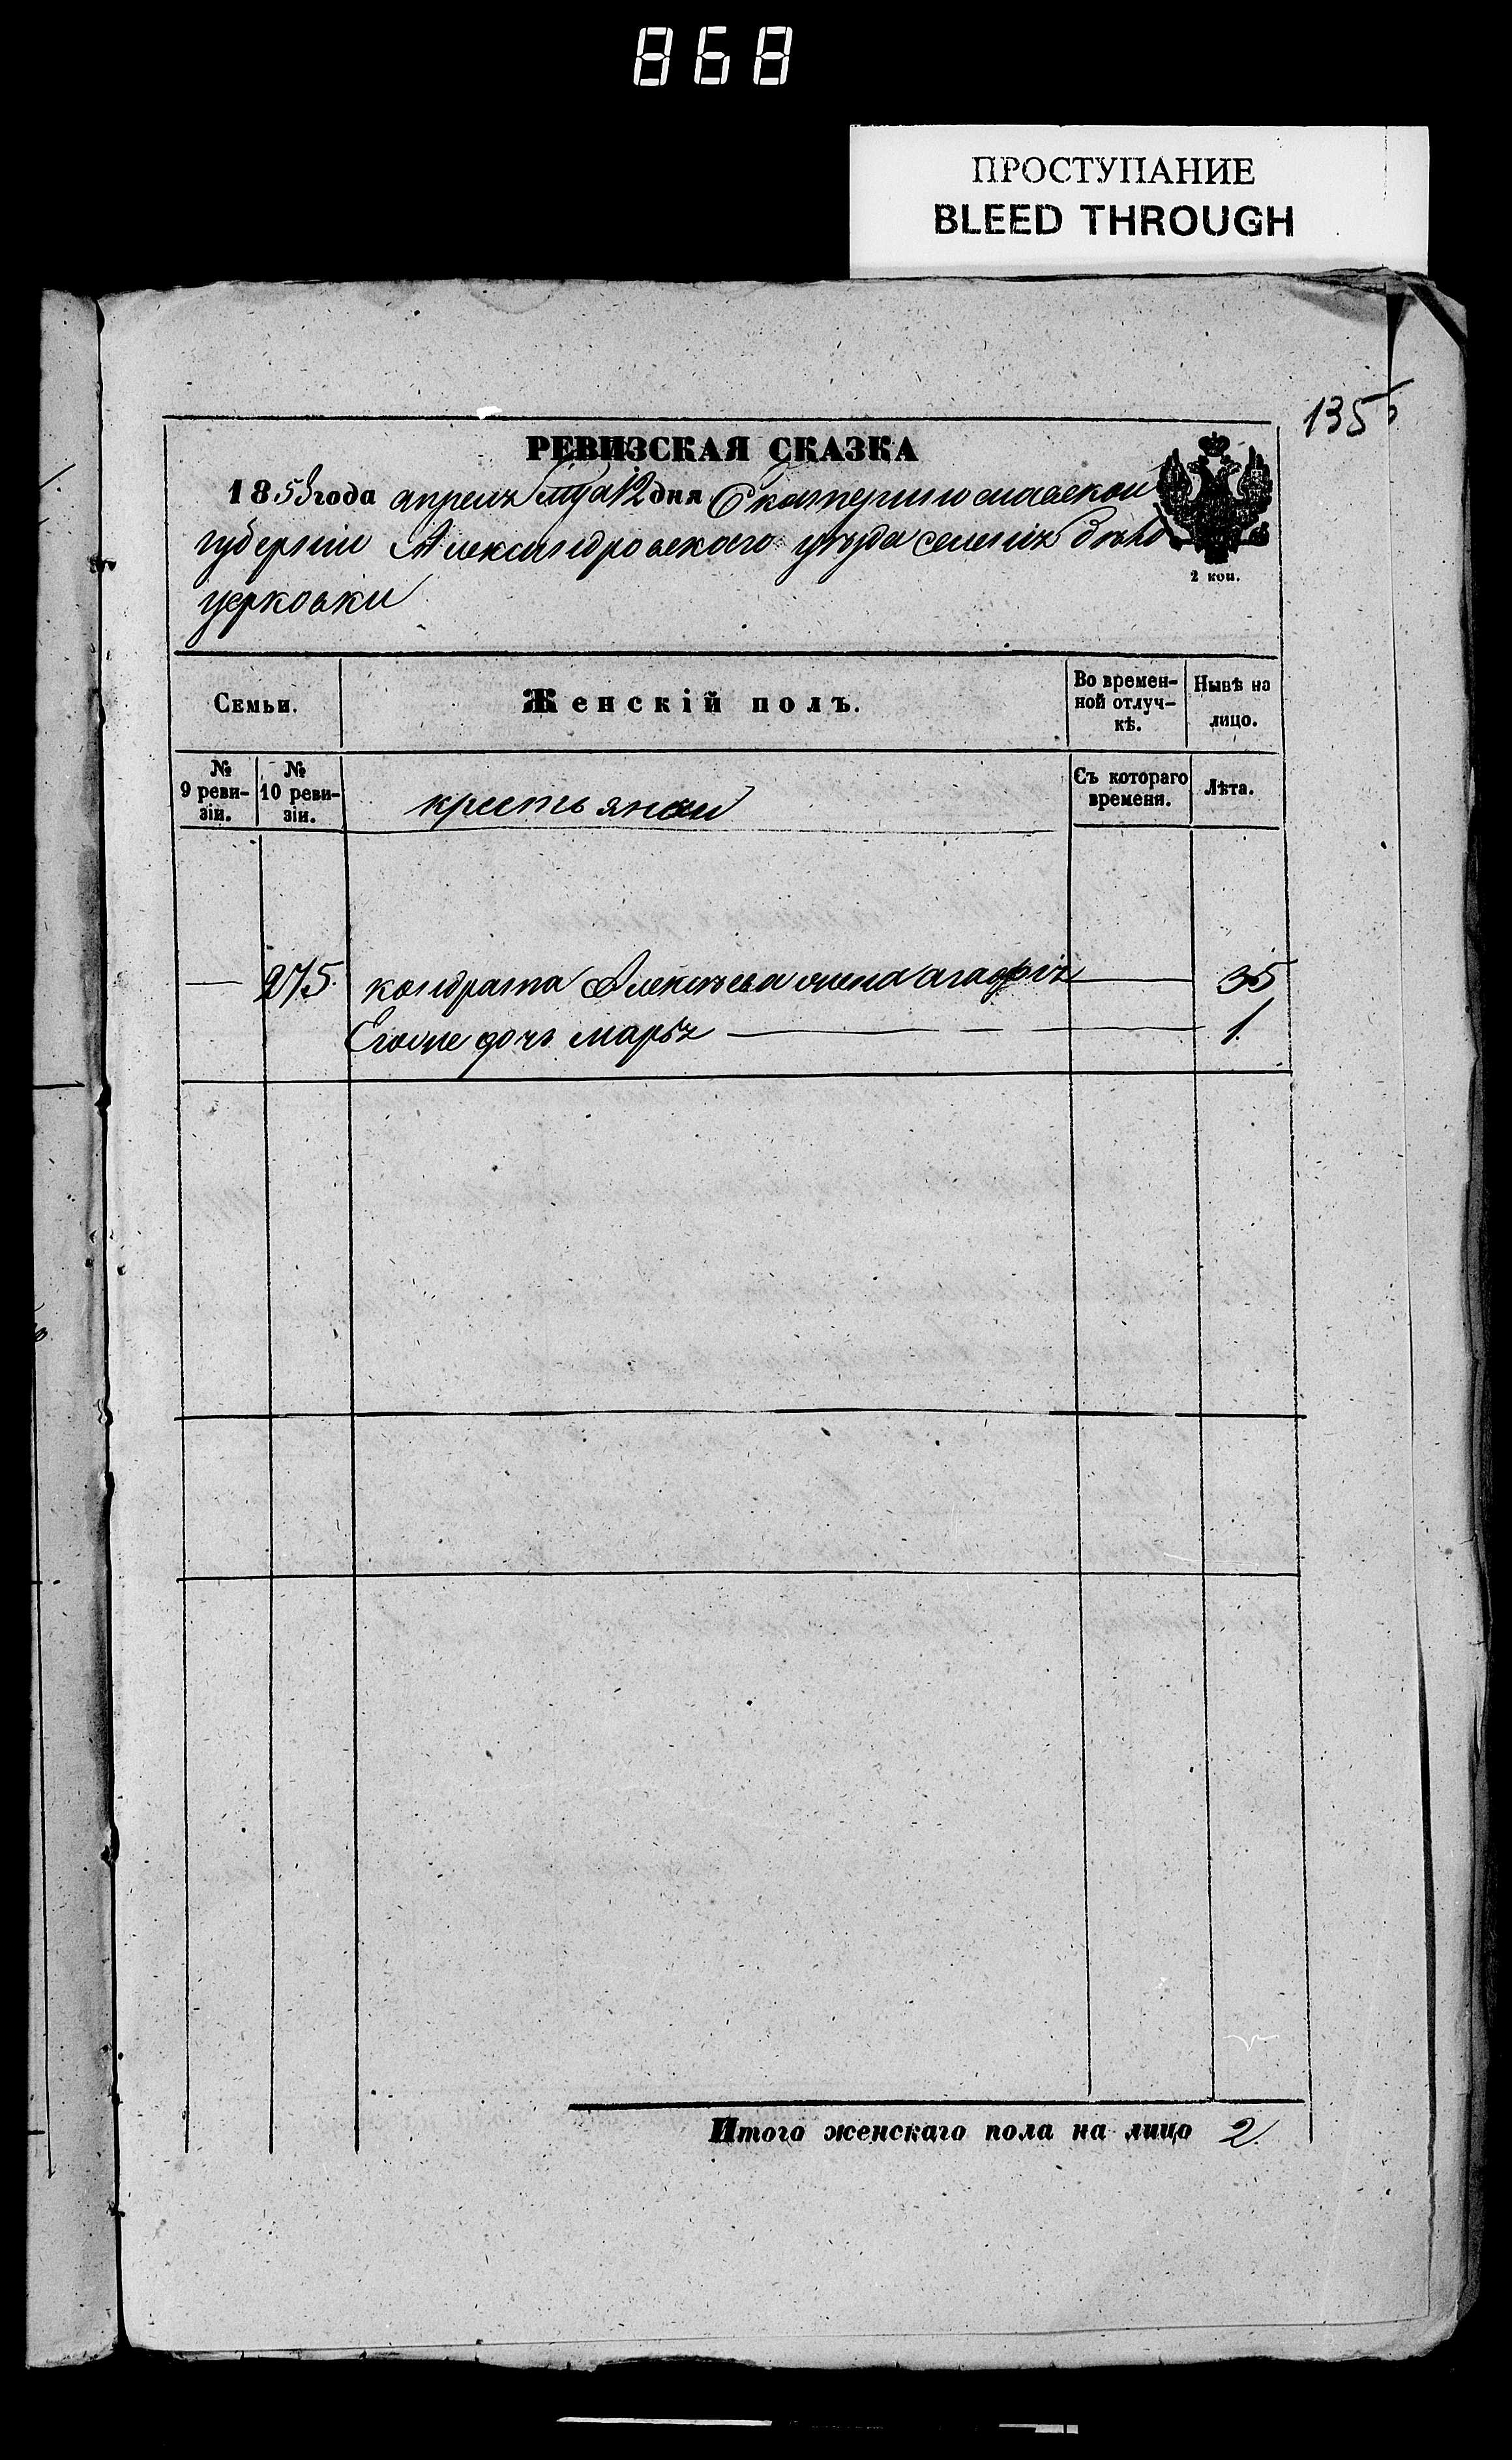 868
ПРОСТУПАНИЕ
BLEED THROUGH
135
РЕВИЗСКАЯ СКАЗКА
1858 года апреля мца 12 дня Екатеринославской
губерніи Александровскаго уѣзда селенія Бѣло
церковки
2 коп.
Семьи. Женскій полъ. Во времен-ной отлуч-кѣ. Нынѣ на лицо.
№ 9 реви-зіи. № 10 реви-зіи. крестьяне Съ котораго времени. Лѣта.
— 275. кондрата Алексѣева жена агафія — 35
Егоже дочь марья — 1.
Итого женскаго пола на лицо 2.